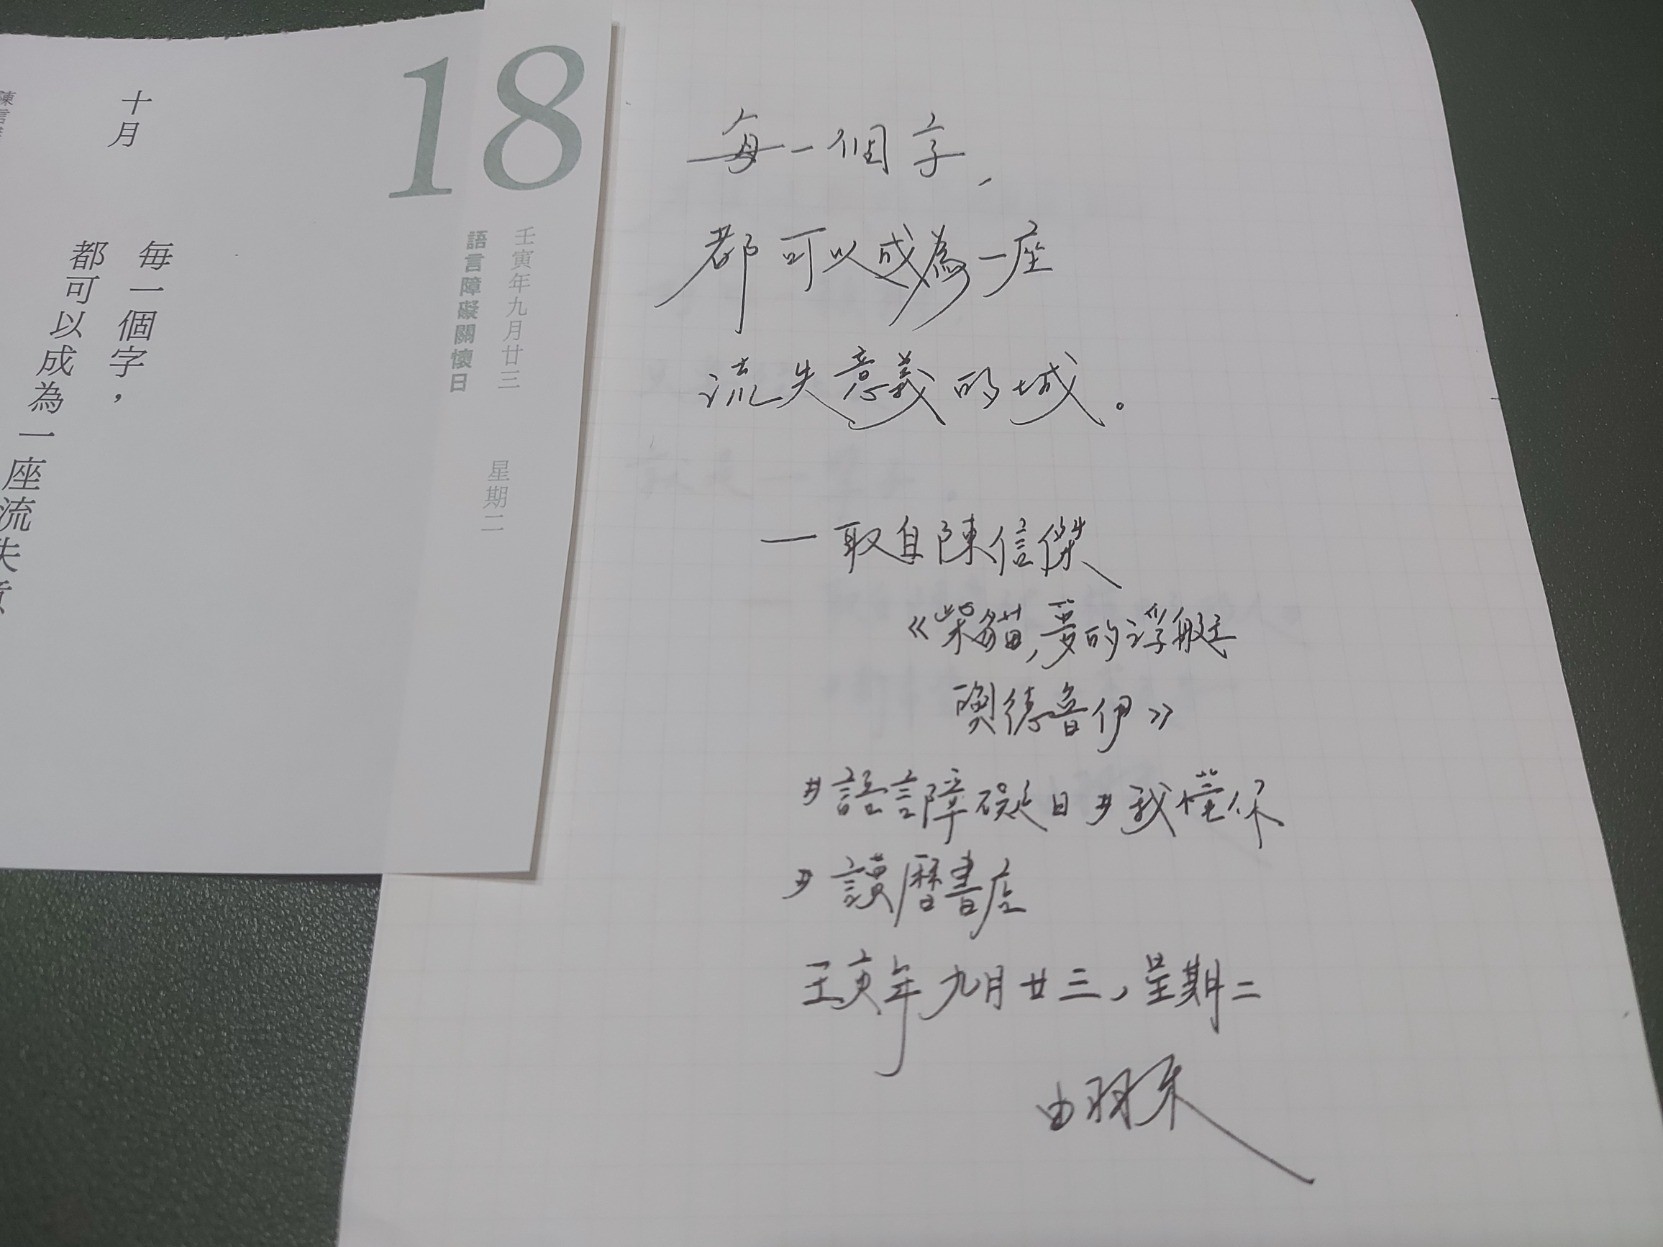 18
十月
壬寅年九月廿三 星期二
語言障礙關懷日
每一個字，
都可以成為一座流失意
陳信
每一個字，
都可以成為一座
流失意義的城。
—取自陳信傑
《柴貓,夢的浮艇
奧德魯伊》
#語言障礙日#我懂你
#讀曆書店
壬寅年九月廿三，星期二